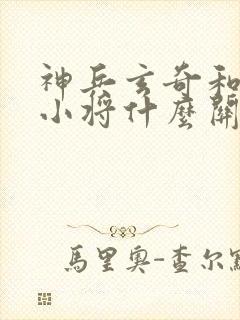 神兵玄奇和
小將什麼關
馬里奧-查尔